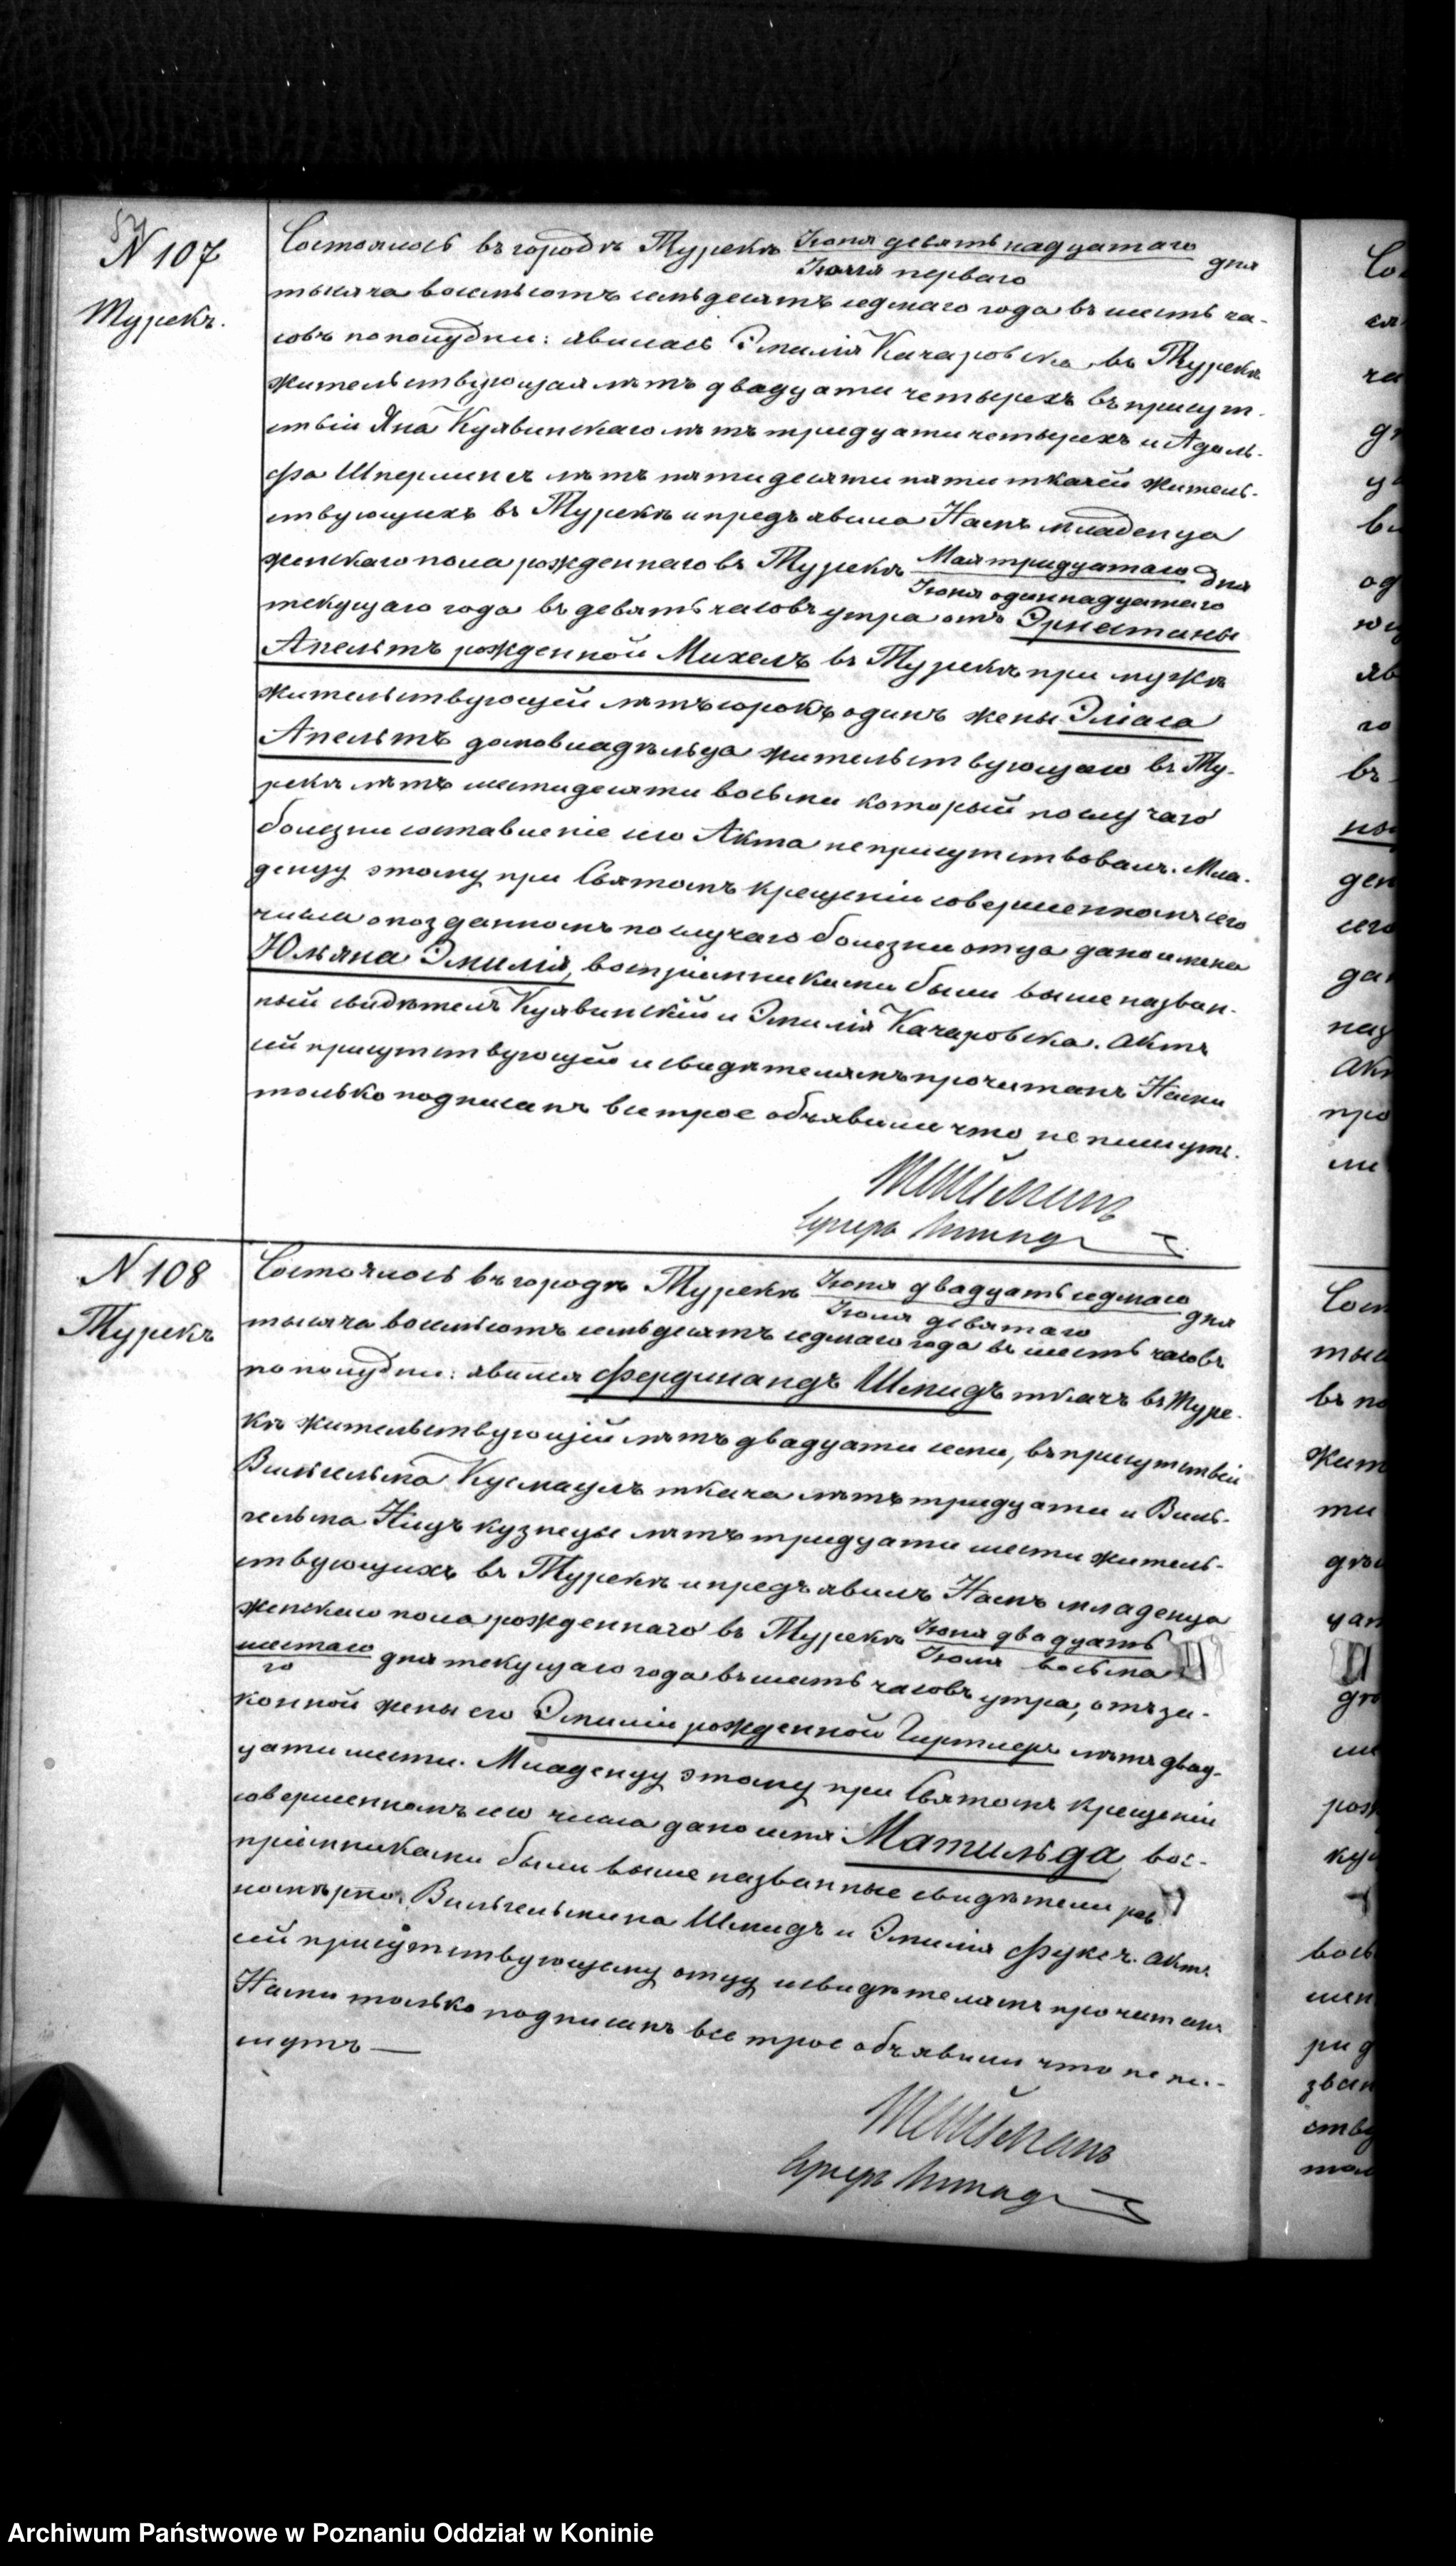 N 107
Турекъ.
Состоялось въ городѣ Турекѣ Іюня девятнадцатаго
Іюля перваго дня
тысяча восемьсотъ семьдесятъ седмаго года въ шесть ча-
совъ пополудни: явилась Эмилія Качаровска, въ Турекѣ
жительствующая лѣтъ двадцати четырехъ въ присут-
ствіи Яна Куявинскаго лѣтъ тридцати четырехъ и Адоль-
фа лѣтъ пятидесяти пяти ткачей житель-
ствующихъ въ Турекѣ и предъявила Намъ младенца
женскаго пола рожденнаго въ Турекѣ Мая тридцатаго дня
Іюня одиннадцатаго
текущаго года въ девять часовъ утра отъ Эрнестины
Апельтъ рожденной Михелъ въ Турекѣ при мужѣ
жительствующей лѣтъ сорокъ одинъ жены Эліаса
Апельтъ домовладѣльца жительствующаго въ Ту-
рекѣ лѣтъ шестидесяти восьми который по случаю
болезни составленіе сего Акта неприсутствовалъ. Мла-
денцу этому при Святомъ крещеніи совершенномъ сего
числа опозданномъ по случаю болезни отца дано имена
Юльяна Эмилія, воспріемниками были выше назван-
ный свидѣтель Куявинскій и Эмилія Качаровска. Актъ
сей присутствующей и свидѣтелямъ прочитанъ Нами
только подписанъ все трое объявили что не пишутъ.
N 108
Турекъ
Состоялось въ городѣ Турекѣ Іюня двадцать седмаго
Іюля девятаго дня
тысяча восемьсотъ семьдесятъ седмаго года въ шесть часовъ
пополудни: явился Фердинандъ Шмидъ ткачъ въ Туре-
кѣ жительствующій лѣтъ двадцати семи, въ присутствіи
Вильгельма Кусмауль ткача лѣтъ тридцати и Виль-
гельма Ницъ кузнецы лѣтъ тридцати шести житель-
ствующихъ въ Турекѣ и предъявилъ Намъ младенца
женскаго пола рожденнаго въ Турекѣ Іюня двадцать
Іюля восьма
шестаго
го дня текущаго года въ шесть часовъ утра, отъ за-
конной жены его Эмиліи рожденной Гиртлеръ лѣтъ двад-
цати шести. Младенцу этому при Святомъ крещеніи
совершенномъ сего числа дано имя: Матильда, вос-
пріемниками были выше названные свидѣтели рав
номѣрно, Вильгельмина Шмидъ и Эмилія Фуксъ. Актъ
сей присутствующему отцу и свидѣтелямъ прочитанъ
Нами только подписанъ все трое объявили что не пи-
шутъ —
Archiwum Państwowe w Poznaniu Oddział w Koninie